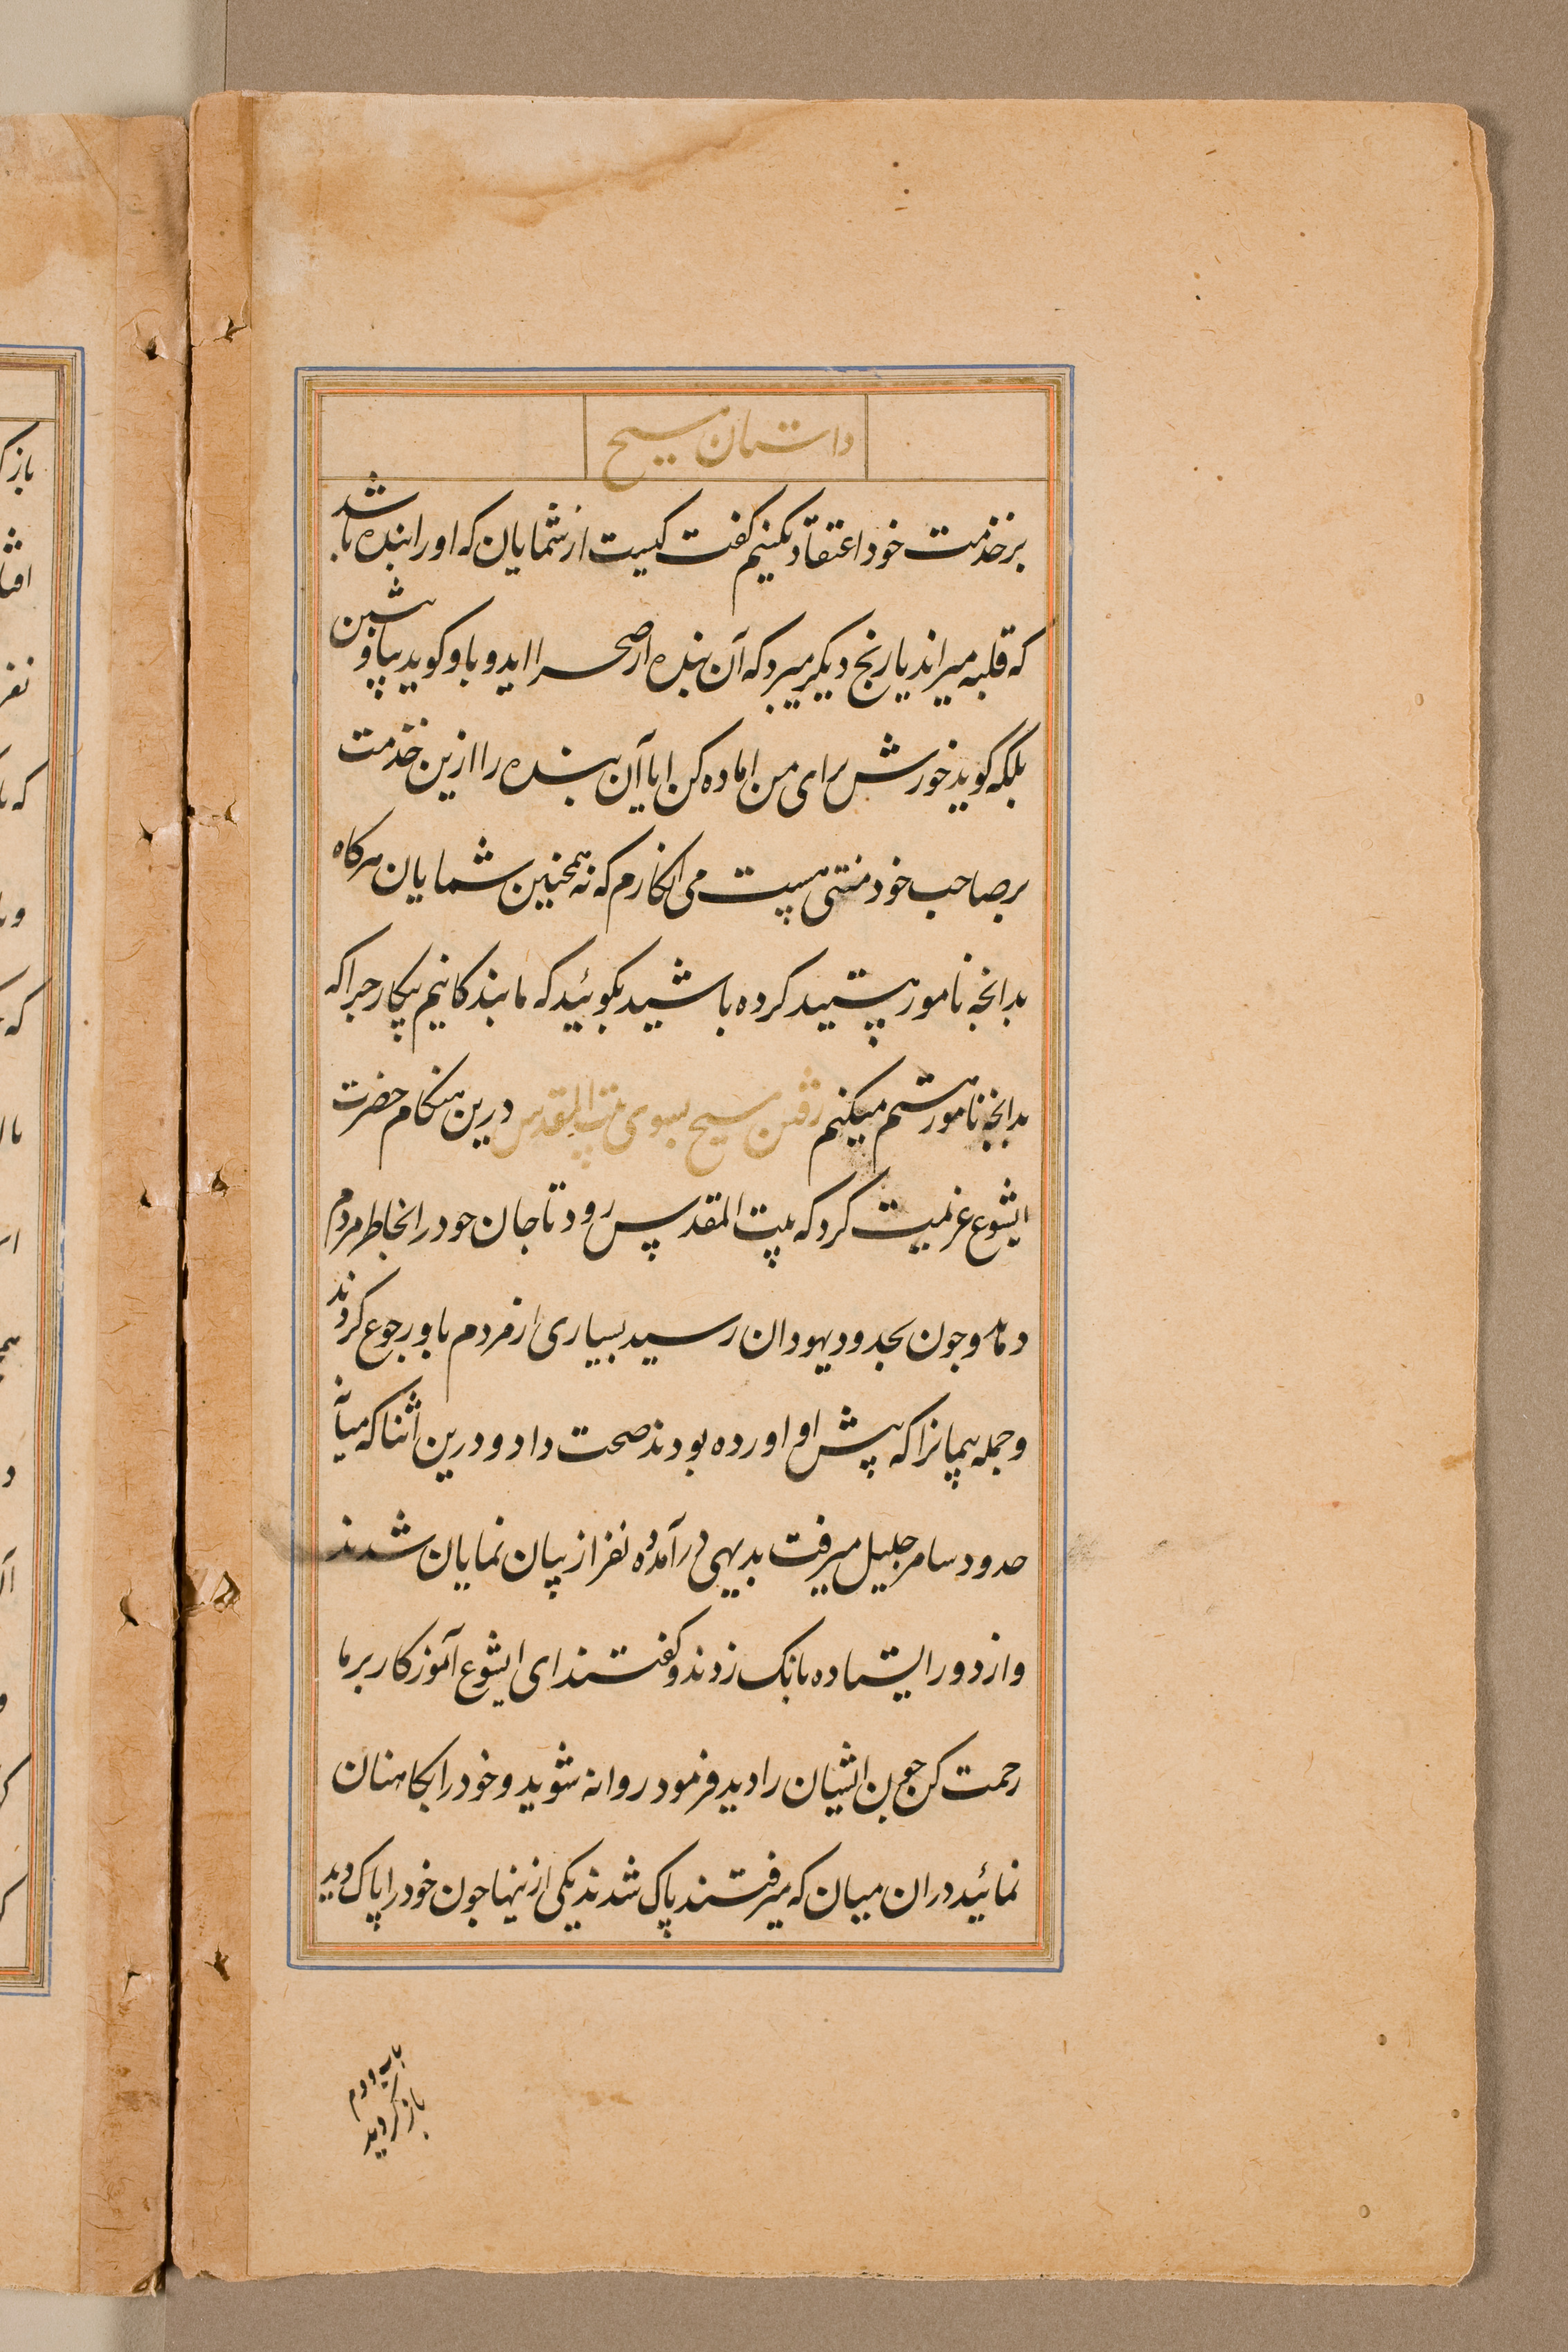 داستان مسیح
برخدمت خود اعتقاد بکنیم گفت کیست از شمایان که او را بنده باشد
که قلبه میراند یا رنج دیگر میبرد که آن بنده از صحرا اید و باو گوید بیا و بشین
بلکه گوید خورش برای من اماده کن ایا آن بنده را ازین خدمت
بر صاحب خود منتی هست می انکارم که نه همچنین شمایان هرکاه
بدانچه نامور هستید کرده باشید بگوئید که ما بندکانیم بیکار چراکه
بدانچه نامور هستم میکنم رفتن مسیح بسوی بیت المقدس درین هنکام حضرت
ایشوع عزیمت کرد که بیت المقدس رود تا جان خود را بخاطر مردم
دهد و چون بحدود یهودان رسید بسیاری از مردم باو رجوع کردند
و جمله بیمارانرا که پیش او اورده بودند صحت داد و درین اثنا که میانه
حدود سامر جلیل میرفت بدیهی درآمد ده نفر از پیسان نمایان شدند
و از دور ایستاده بانک زدند و گفتند ای ایشوع آموزکار بر ما
رحمت کن چون ایشان را دید فرمود روانه شوید و خود را بکاهنان
نمائید دران میان که میرفتند پاک شدند یکی ازینها چون خود را پاک دید
باب دوم
بازگردید